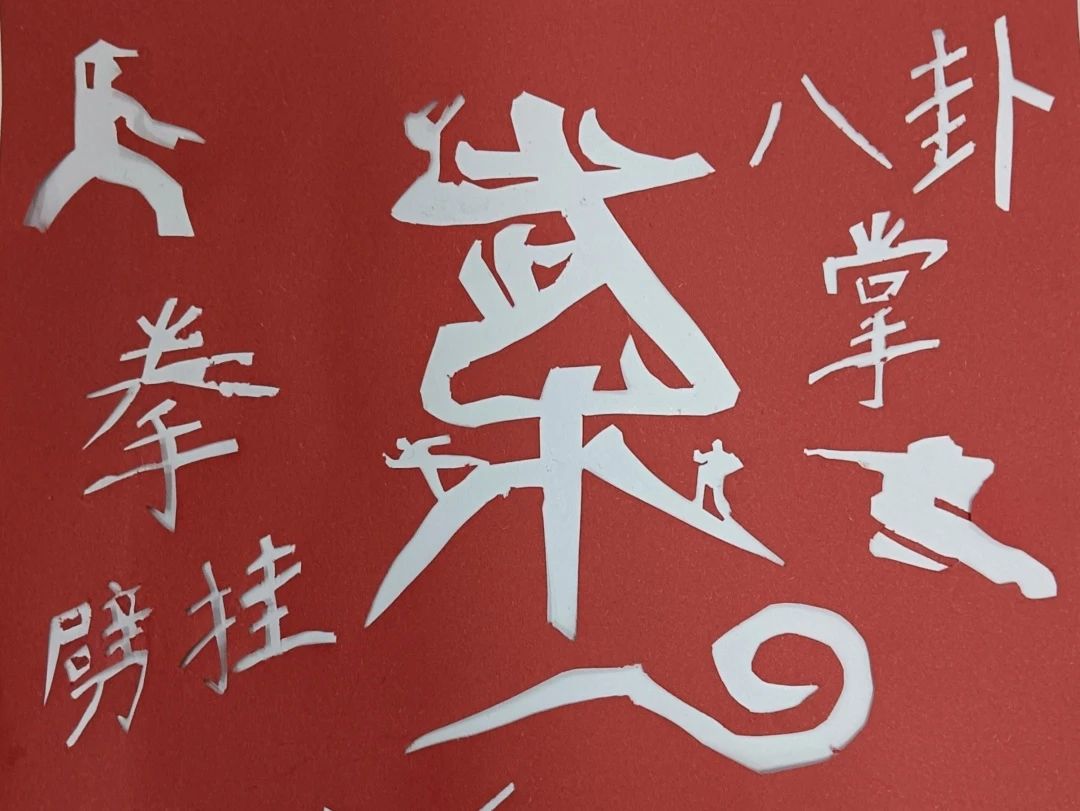 武术
八卦
掌
拳
劈挂